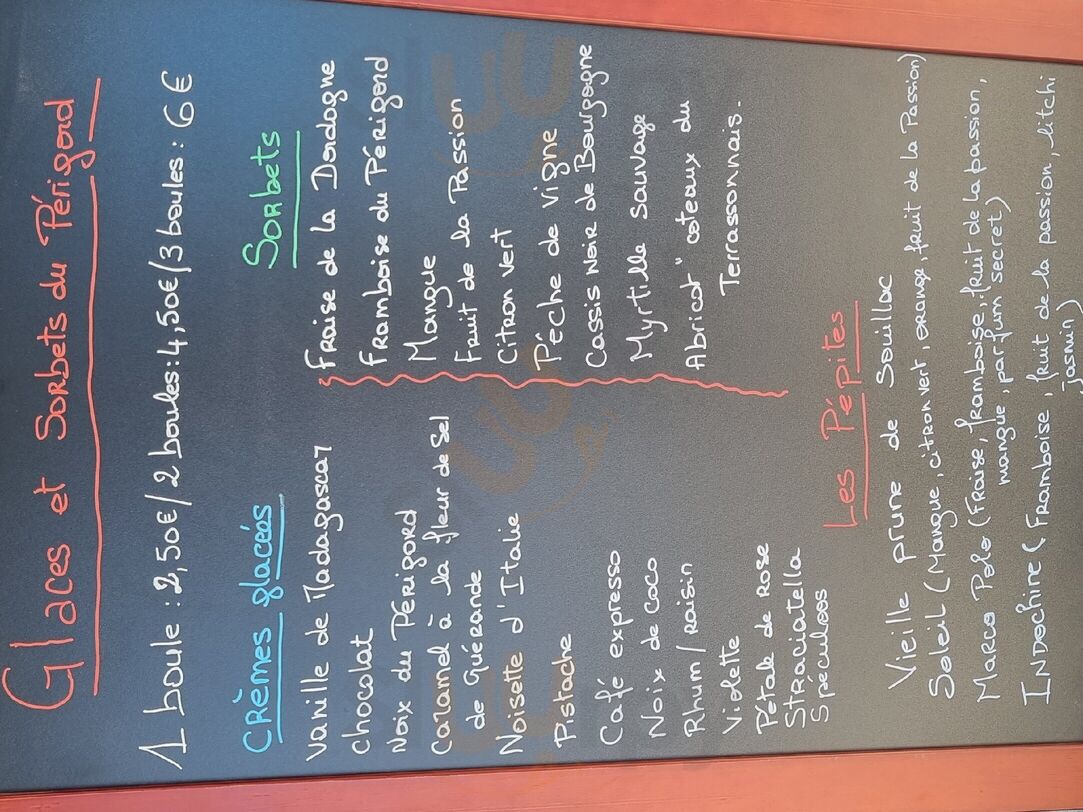 Glaces et Sorbets du Périgord
1 boule : 2,50€ / 2 boules : 4,50€ / 3 boules : 6€
Crèmes glacées
Vanille de Madagascar
chocolat
Noix du Périgord
Caramel à la fleur de Sel
de Guérande
Noisette d'Italie
Pistache
Café expresso
Noix de coco
Rhum / raisin
Violette
Pétale de Rose
Straciatella
Spéculoos
Sorbets
Fraise de la Dordogne
Framboise du Périgord
Mangue
Fruit de la Passion
Citron vert
Pêche de vigne
Cassis Noir de Bourgogne
Myrtille sauvage
Abricot " coteaux du
Terrassonnais.
Les Pépites
Vieille prune de Souillac
Soleil (Mangue, citron vert, orange, fruit de la Passion)
Marco Polo (Fraise, framboise, fruit de la passion,
mangue, parfum secret)
Indochine (Framboise, fruit de la passion, litchi
jasmin)